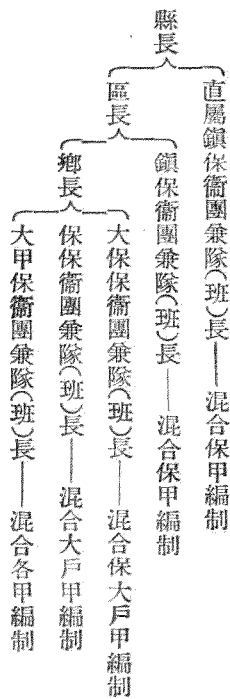 縣長
直屬鎭保衞團兼隊(班)長——混合保甲編制
區長
鎭保衞團兼隊(班)長——混合保甲編制
鄕長
大保保衞團兼隊(班)長——混合保大戶甲編制
保保衞團兼隊(班)長——混合大戶甲編制
大甲保衞團兼隊(班)長——混合各甲編制